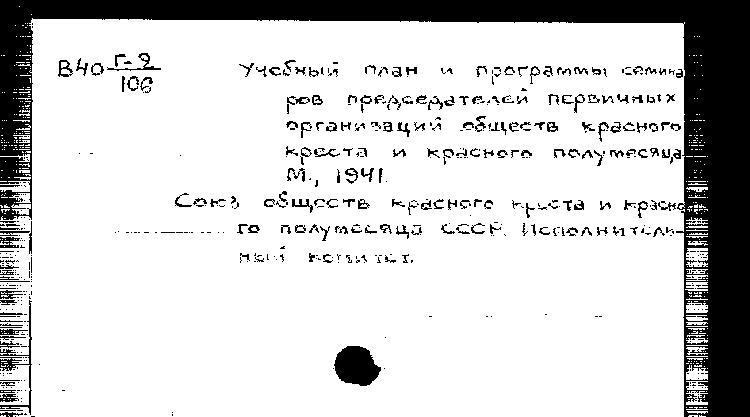 В40 Г-2
106
Учебный план и программы семина
ров председателей первичных
организаций обществ красного
креста и красного полумесяца
М., 1941.
Союз обществ красного креста и красно
го полумесяца СССР. Исполнитель-
ный комитет.